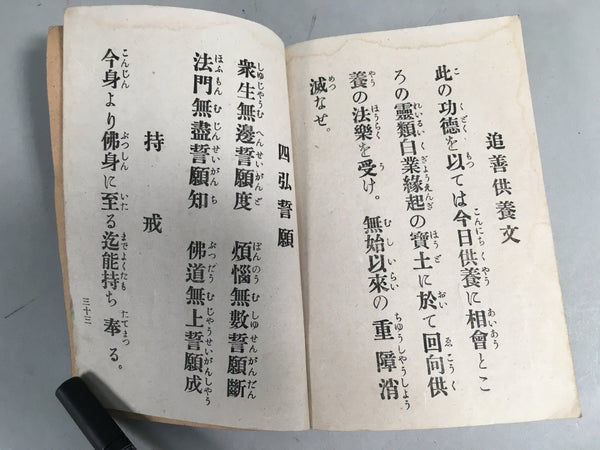 追善供養文
此の功德を以ては今日供養に相會とこ
ろの靈類白業緣起の寶土に於て回向供
養の法樂を受け。無始以來の重障消
滅なぜ。
四弘誓願
衆生無邊誓願度　煩惱無數誓願斷
法門無盡誓願知　佛道無上誓願成
持戒
今身より佛身に至る迄能持ち奉る。
三十三